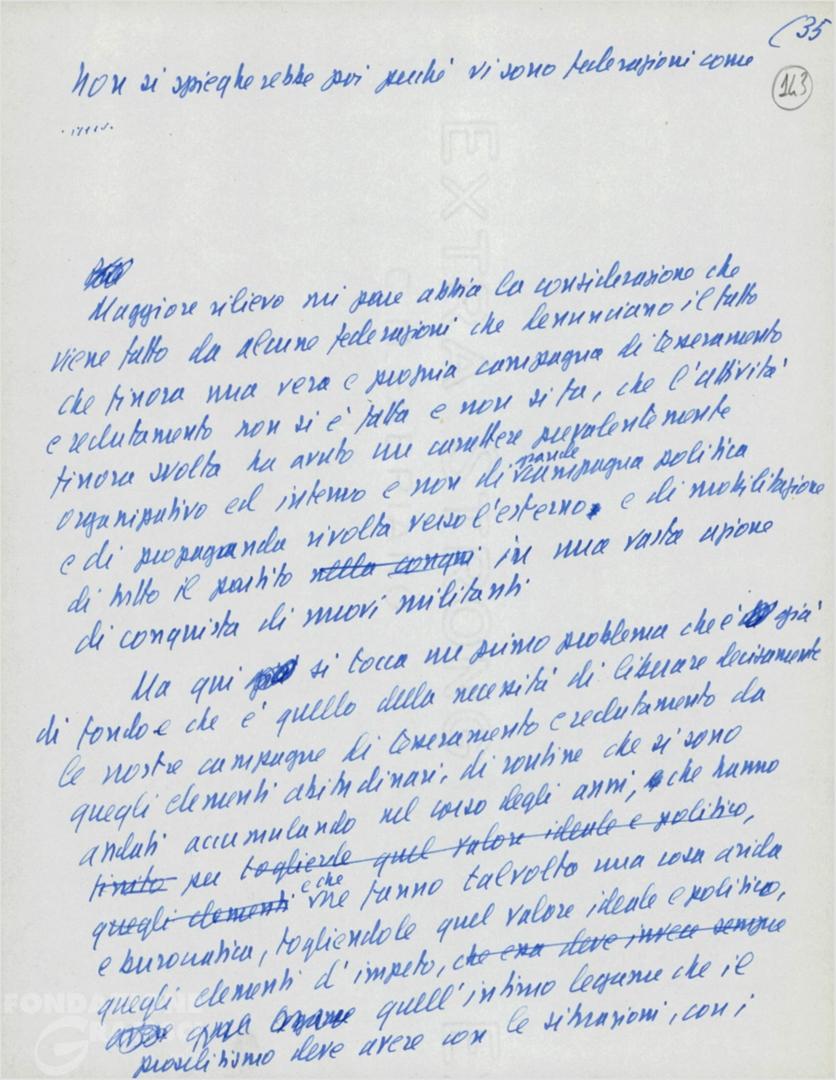 (35
143
Non si spiegherebbe poi perché vi sono federazioni come
.....
Maggiore rilievo mi pare abbia la considerazione che
viene fatto da alcune federazioni che denunciano il fatto
che finora una vera e propria campagna di tesseramento
e reclutamento non si è fatta e non si fa, che l'attività
finora svolta ha avuto un carattere prevalentemente
organizzativo ed interno e non di grande campagna politica
e di propaganda rivolta verso l'esterno e di mobilitazione
di tutto il partito nella conqui in una vasta azione
di conquista di nuovi militanti
Ma qui si tocca un primo problema che è già
di fondo e che è quello della necessità di liberare decisamente
le nostre campagne di tesseramento e reclutamento da
quegli elementi abitudinari, di routine che si sono
andati accumulando nel corso degli anni, che hanno
finito per toglierle quel valore ideale e politico,
quegli elementi e che ne fanno talvolta una cosa arida
e burocratica, togliendole quel valore ideale e politico,
quegli elementi d'impeto, che essa deve invece sempre
quell'intimo legame che il
proselitismo deve avere con le situazioni, con i
FONDAZIONE
GRAMSCI
EXTRA STRONG